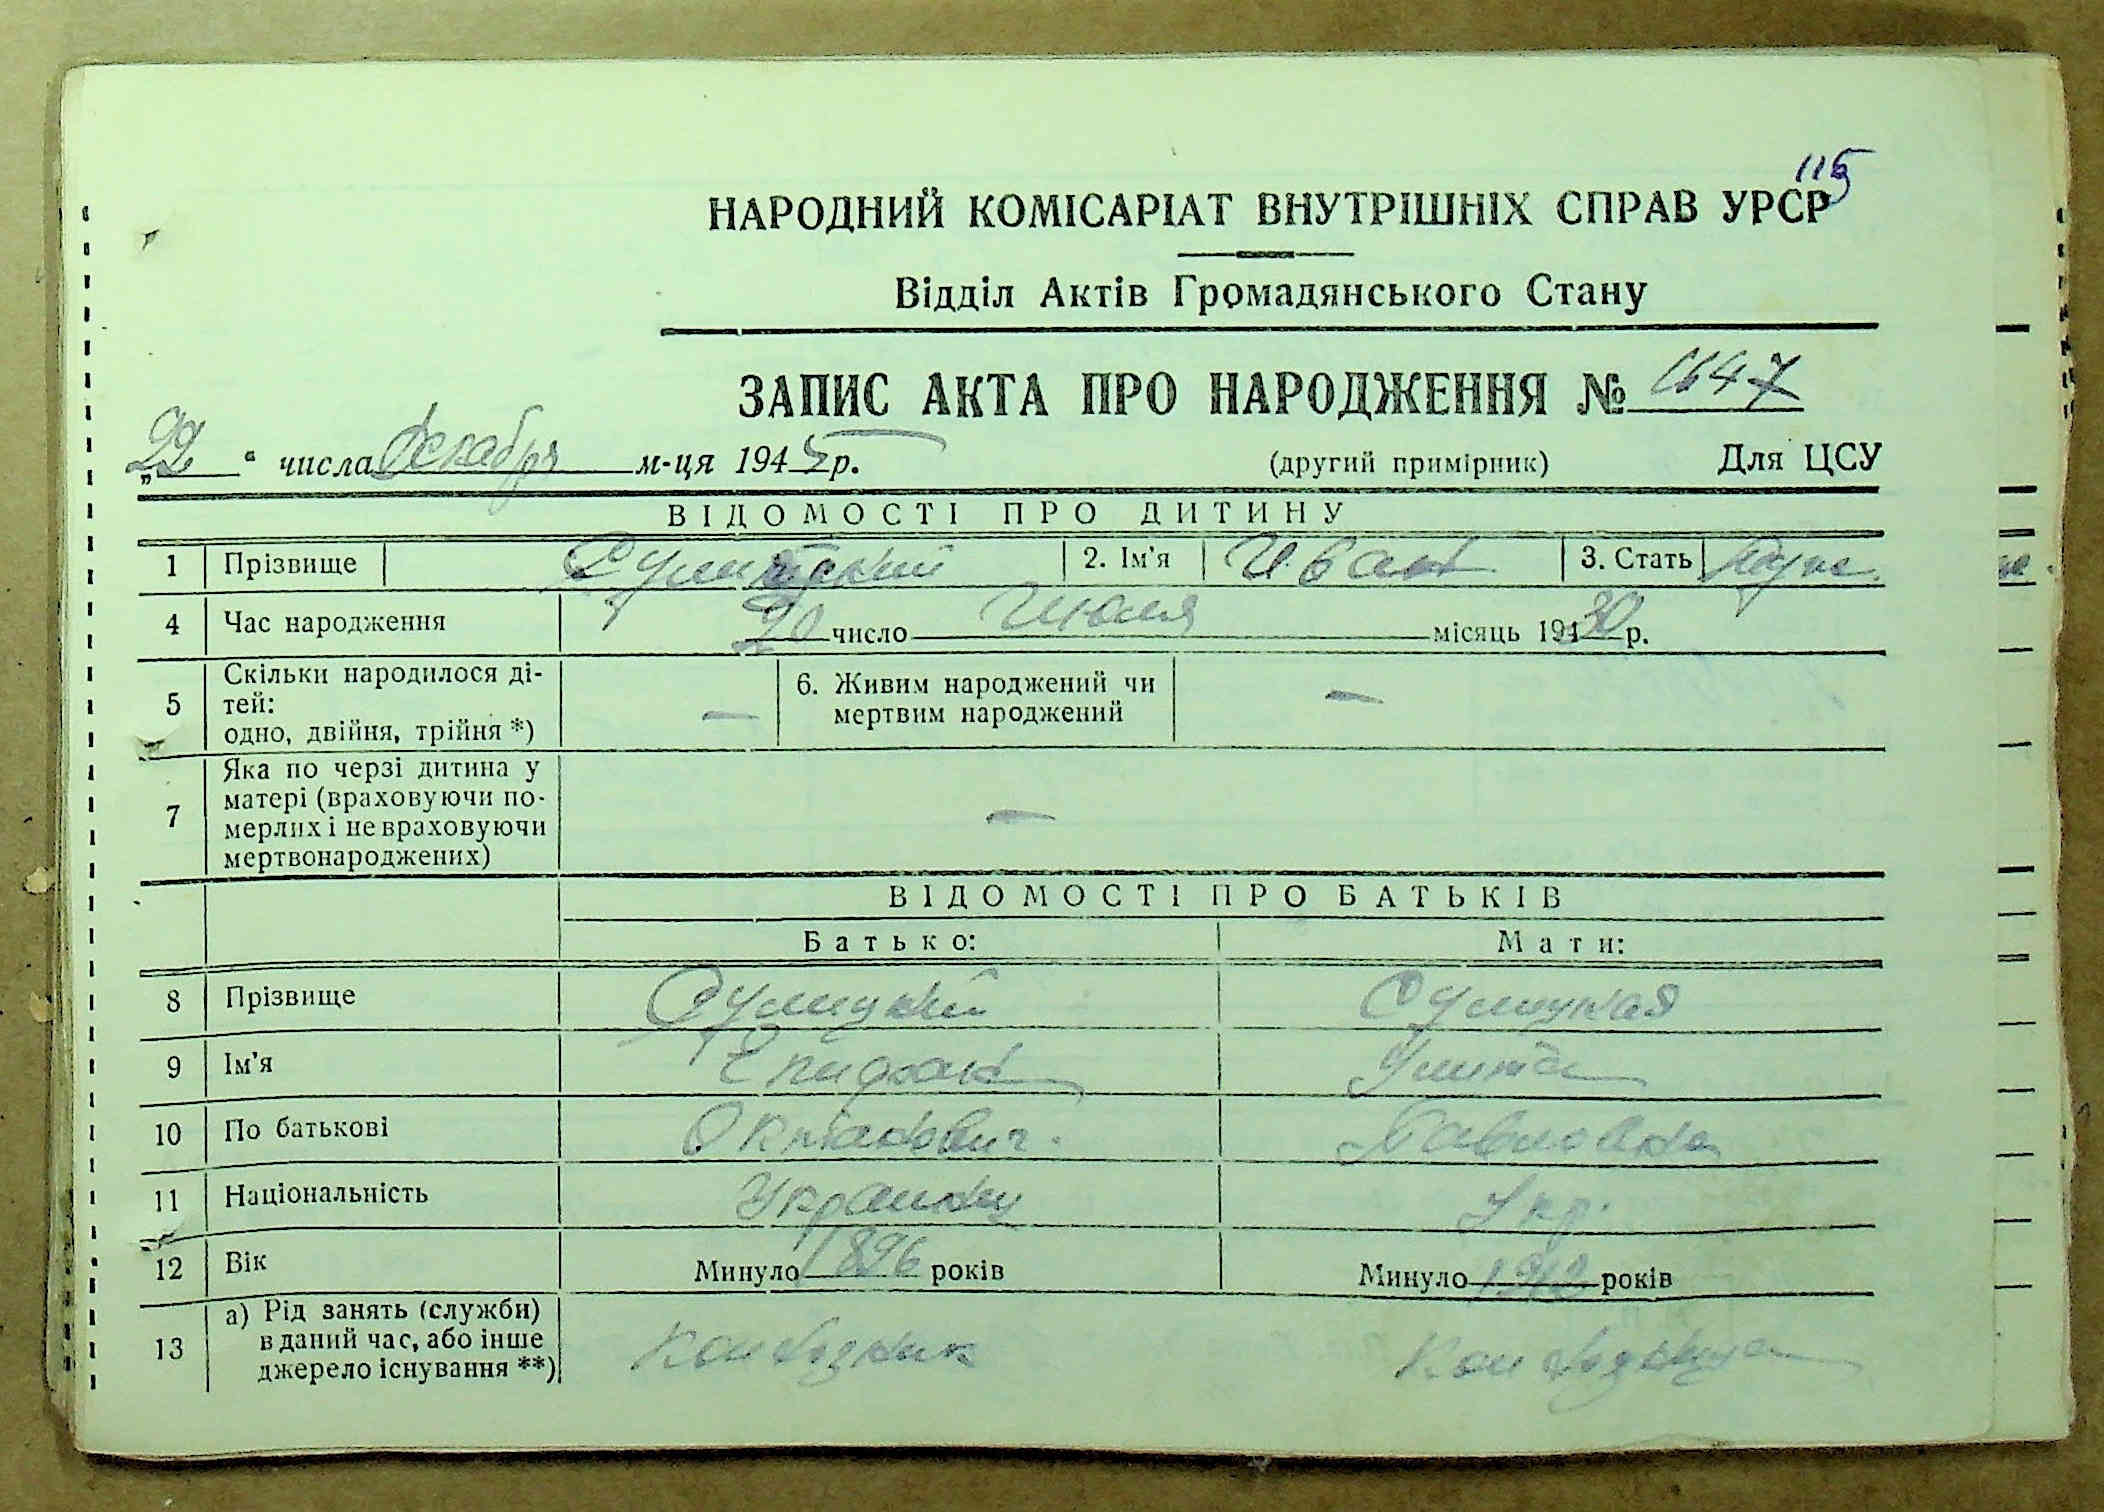 115
НАРОДНИЙ КОМІСАРІАТ ВНУТРІШНІХ СПРАВ УРСР
Відділ Актів Громадянського Стану
ЗАПИС АКТА ПРО НАРОДЖЕННЯ № 1647
„22" числа Декабря м-ця 1945 р. (другий примірник) Для ЦСУ
ВІДОМОСТІ ПРО ДИТИНУ
1 Прізвище 2. Ім'я Иван 3. Стать Муж.
4 Час народження 20 число Июля місяць 1930 р.
5 Скільки народилося ді-
тей:
одно, двійня, трійня *) —
6. Живим народжений чи
мертвим народжений —
7 Яка по черзі дитина у
матері (враховуючи по-
мерлих і не враховуючи
мертвонароджених) —
ВІДОМОСТІ ПРО БАТЬКІВ
Батько: Мати:
8 Прізвище Сулицкий Сулицкая
9 Ім'я Улита
10 По батькові Павловна
11 Національність Украинец Укр.
12 Вік Минуло 1896 років Минуло 1912 років
13 а) Рід занять (служби)
в даний час, або інше
джерело існування **) Колхозник Колхозница